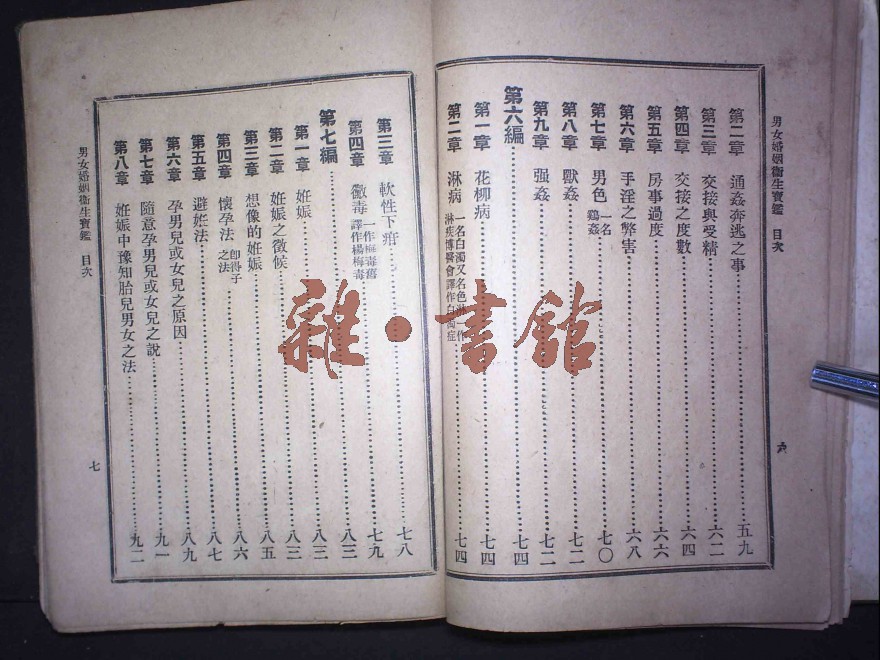 男女婚姻衞生寶鑑 目次
六
第二章 通姦奔逃之事……五九
第三章 交接與受精……六二
第四章 交接之度數……六四
第五章 房事過度……六六
第六章 手淫之弊害……六八
第七章 男色 一名鷄姦……七〇
第八章 獸姦……七二
第九章 强姦……七二
第六編……七四
第一章 花柳病……七四
第二章 淋病 一名白濁又名色淋一作淋疾博醫會譯作白濁症……七四
第三章 軟性下疳……七八
第四章 黴毒 一作梅毒舊譯作楊梅毒……七九
第七編……八三
第一章 妊娠……八三
第二章 妊娠之徵候……八三
第三章 想像的妊娠……八五
第四章 懷孕法 卽得子之法……八六
第五章 避妊法……八七
第六章 孕男兒或女兒之原因……八九
第七章 隨意孕男兒或女兒之說……九一
第八章 妊娠中豫知胎兒男女之法……九二
男女婚姻衞生寶鑑 目次
七
雜·書館